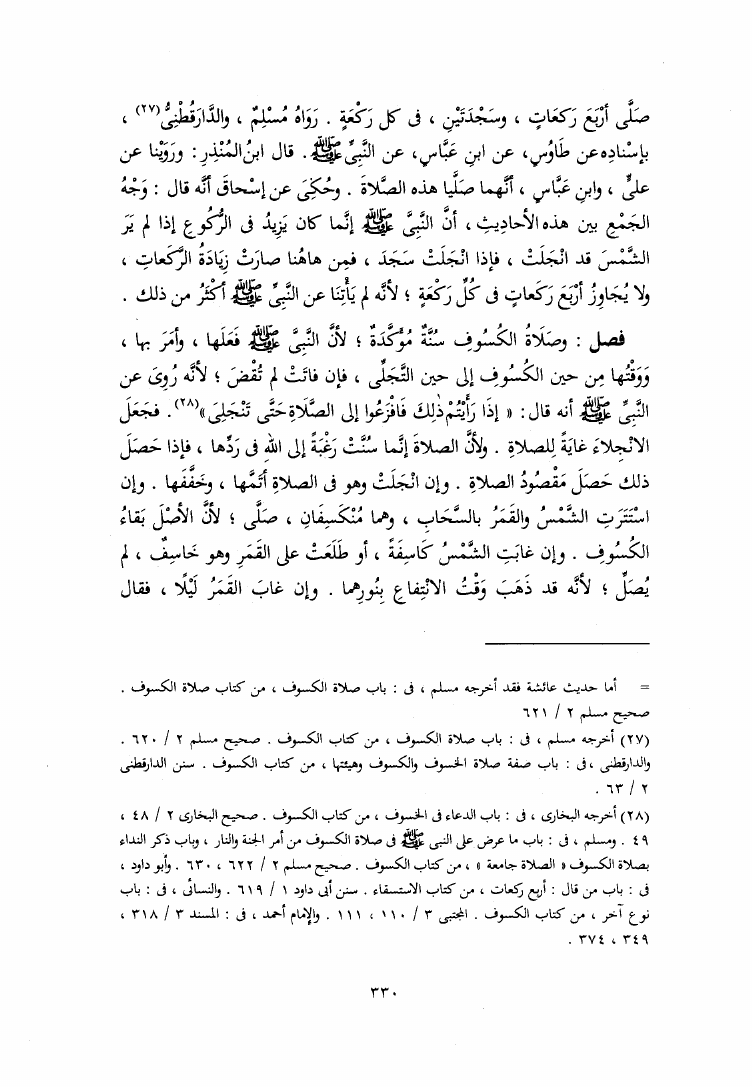 صَلَّى أرْبَعَ رَكَعَاتٍ ، وسَجْدَتَيْنِ ، فى كل رَكْعَةٍ . رَوَاهُ مُسْلِمٌ ، والدَّارَقُطْنِىُّ(٢٧) ،
بإسْنادِه عن طَاوُسٍ، عن ابنِ عَبَّاسٍ، عن النَّبِىِّ ﷺ. قال ابنُ المُنْذِرِ : ورَوَيْنا عن
علىٍّ ، وابنِ عَبَّاسٍ ، أنَّهما صَلَّيا هذه الصَّلاةَ . وحُكِىَ عن إسْحاقَ أنَّه قال : وَجْهُ
الجَمْعِ بين هذه الأحادِيثِ ، أنَّ النَّبِىَّ ﷺ إنَّما كان يَزِيدُ فى الرُّكُوعِ إذا لم يَرَ
الشَّمْسَ قد انْجَلَتْ ، فإذا انْجَلَتْ سَجَدَ ، فمِن هاهُنا صارَتْ زِيَادَةُ الرَّكعاتِ ،
ولا يُجَاوِزُ أرْبَعَ رَكعاتٍ فى كُلِّ رَكْعَةٍ ؛ لأنَّه لم يَأْتِنَا عن النَّبِىِّ ﷺ أكْثَرُ من ذلك .
فصل : وصَلَاةُ الكُسُوفِ سُنَّةٌ مُؤَكَّدَةٌ ؛ لأنَّ النَّبِىَّ ﷺ فَعَلَها ، وأمَرَ بها ،
وَوَقْتُها مِن حين الكُسُوفِ إلى حين التَّجَلِّى ، فإن فاتَتْ لم تُقْضَ ؛ لأنَّه رُوِىَ عن
النَّبِىِّ ﷺ أنه قال : « إذَا رَأَيْتُمْ ذٰلِكَ فَافْزَعُوا إلى الصَّلَاةِ حَتَّى تَنْجَلِىَ »(٢٨). فجَعَلَ
الانْجِلاءَ غايَةً لِلصلاةِ . ولأنَّ الصلاةَ إنَّما سُنَّتْ رَغْبَةً إلى اللهِ فى رَدِّها ، فإذا حَصَلَ
ذلك حَصَلَ مَقْصُودُ الصلاةِ . وإن انْجَلَتْ وهو فى الصلاةِ أتَمَّها ، وخَفَّفَها . وإن
اسْتَتَرَتِ الشَّمْسُ والقَمَرُ بالسَّحَابِ ، وهما مُنْكَسِفَانِ ، صَلَّى ؛ لأنَّ الأصْلَ بَقاءُ
الكُسُوفِ . وإن غابَتِ الشَّمْسُ كاسِفَةً ، أو طَلَعَتْ على القَمَرِ وهو خَاسِفٌ ، لم
يُصَلِّ ؛ لأنَّه قد ذَهَبَ وَقْتُ الانْتِفاعِ بِنُورِهما . وإن غابَ القَمَرُ لَيْلًا ، فقال
= أما حديث عائشة فقد أخرجه مسلم ، فى : باب صلاة الكسوف ، من كتاب صلاة الكسوف .
صحيح مسلم ٢ / ٦٢١
(٢٧) أخرجه مسلم ، فى : باب صلاة الكسوف ، من كتاب الكسوف . صحيح مسلم ٢ / ٦٢٠ .
والدارقطنى ،فى : باب صفة صلاة الخسوف والكسوف وهيئتها ، من كتاب الكسوف . سنن الدارقطنى
٢ / ٦٣ .
(٢٨) أخرجه البخارى ، فى : باب الدعاء فى الخسوف ، من كتاب الكسوف . صحيح البخارى ٢ / ٤٨ ،
٤٩ . ومسلم ، فى : باب ما عرض على النبى ﷺ فى صلاة الكسوف من أمر الجنة والنار ، وباب ذكر النداء
بصلاة الكسوف « الصلاة جامعة » ، من كتاب الكسوف . صحيح مسلم ٢ / ٦٢٢ ، ٦٣٠ . وأبو داود ،
فى : باب من قال : أربع ركعات ، من كتاب الاستسقاء . سنن أبى داود ١ / ٦١٩ . والنسائى ، فى : باب
نوع آخر ، من كتاب الكسوف . المجتبى ٣ / ١١٠ ، ١١١ . والإمام أحمد ، فى : المسند ٣ / ٣١٨ ،
٣٤٩ ، ٣٧٤ .
٣٣٠